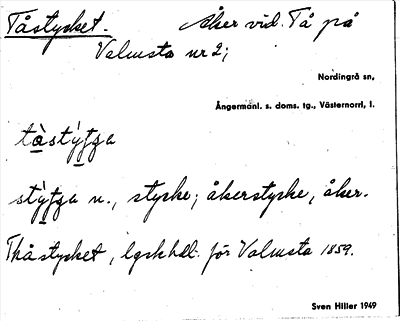 Tåstycket. Åker vid Tå på
Valmsta nr 2;
Nordingrå sn,
Ångermanl. s. doms. tg., Västernorrl, l.
n., stycke; åkerstycke, åker.
Thåstycket, lgskhdl. för Valmsta 1859.
Sven Hiller 1949